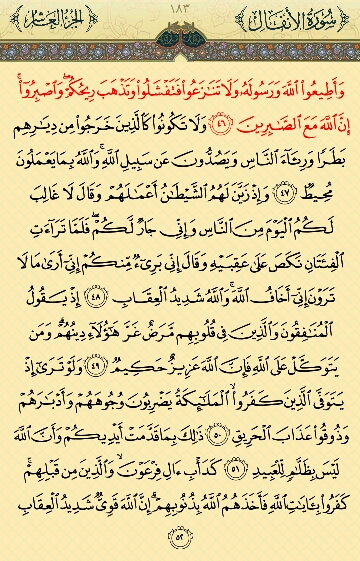 سُورَةُ الأَنفَالِ ١٨٣ الجُزءُ العَاشِرُ
وَأَطِيعُوا۟ ٱللَّهَ وَرَسُولَهُۥ وَلَا تَنَٰزَعُوا۟ فَتَفْشَلُوا۟ وَتَذْهَبَ رِيحُكُمْ ۖ وَٱصْبِرُوٓا۟ ۚ
إِنَّ ٱللَّهَ مَعَ ٱلصَّٰبِرِينَ ٤٦ وَلَا تَكُونُوا۟ كَٱلَّذِينَ خَرَجُوا۟ مِن دِيَٰرِهِم
بَطَرًا وَرِئَآءَ ٱلنَّاسِ وَيَصُدُّونَ عَن سَبِيلِ ٱللَّهِ ۚ وَٱللَّهُ بِمَا يَعْمَلُونَ
مُحِيطٌ ٤٧ وَإِذْ زَيَّنَ لَهُمُ ٱلشَّيْطَٰنُ أَعْمَٰلَهُمْ وَقَالَ لَا غَالِبَ
لَكُمُ ٱلْيَوْمَ مِنَ ٱلنَّاسِ وَإِنِّى جَارٌ لَّكُمْ ۖ فَلَمَّا تَرَآءَتِ
ٱلْفِئَتَانِ نَكَصَ عَلَىٰ عَقِبَيْهِ وَقَالَ إِنِّى بَرِىٓءٌ مِّنكُمْ إِنِّىٓ أَرَىٰ مَا لَا
تَرَوْنَ إِنِّىٓ أَخَافُ ٱللَّهَ ۚ وَٱللَّهُ شَدِيدُ ٱلْعِقَابِ ٤٨ إِذْ يَقُولُ
ٱلْمُنَٰفِقُونَ وَٱلَّذِينَ فِى قُلُوبِهِم مَّرَضٌ غَرَّ هَٰٓؤُلَآءِ دِينُهُمْ ۗ وَمَن
يَتَوَكَّلْ عَلَى ٱللَّهِ فَإِنَّ ٱللَّهَ عَزِيزٌ حَكِيمٌ ٤٩ وَلَوْ تَرَىٰٓ إِذْ
يَتَوَفَّى ٱلَّذِينَ كَفَرُوا۟ ۙ ٱلْمَلَٰٓئِكَةُ يَضْرِبُونَ وُجُوهَهُمْ وَأَدْبَٰرَهُمْ
وَذُوقُوا۟ عَذَابَ ٱلْحَرِيقِ ٥٠ ذَٰلِكَ بِمَا قَدَّمَتْ أَيْدِيكُمْ وَأَنَّ ٱللَّهَ
لَيْسَ بِظَلَّٰمٍ لِّلْعَبِيدِ ٥١ كَدَأْبِ ءَالِ فِرْعَوْنَ ۙ وَٱلَّذِينَ مِن قَبْلِهِمْ ۚ
كَفَرُوا۟ بِـَٔايَٰتِ ٱللَّهِ فَأَخَذَهُمُ ٱللَّهُ بِذُنُوبِهِمْ ۗ إِنَّ ٱللَّهَ قَوِىٌّ شَدِيدُ ٱلْعِقَابِ
٥٢